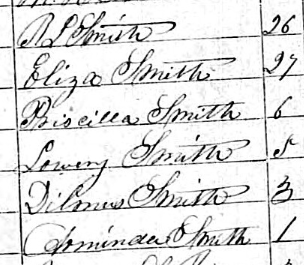 R L Smith 26
Eliza Smith 27
Priscilla Smith 6
Lowery Smith
Smith 3
Smith 1